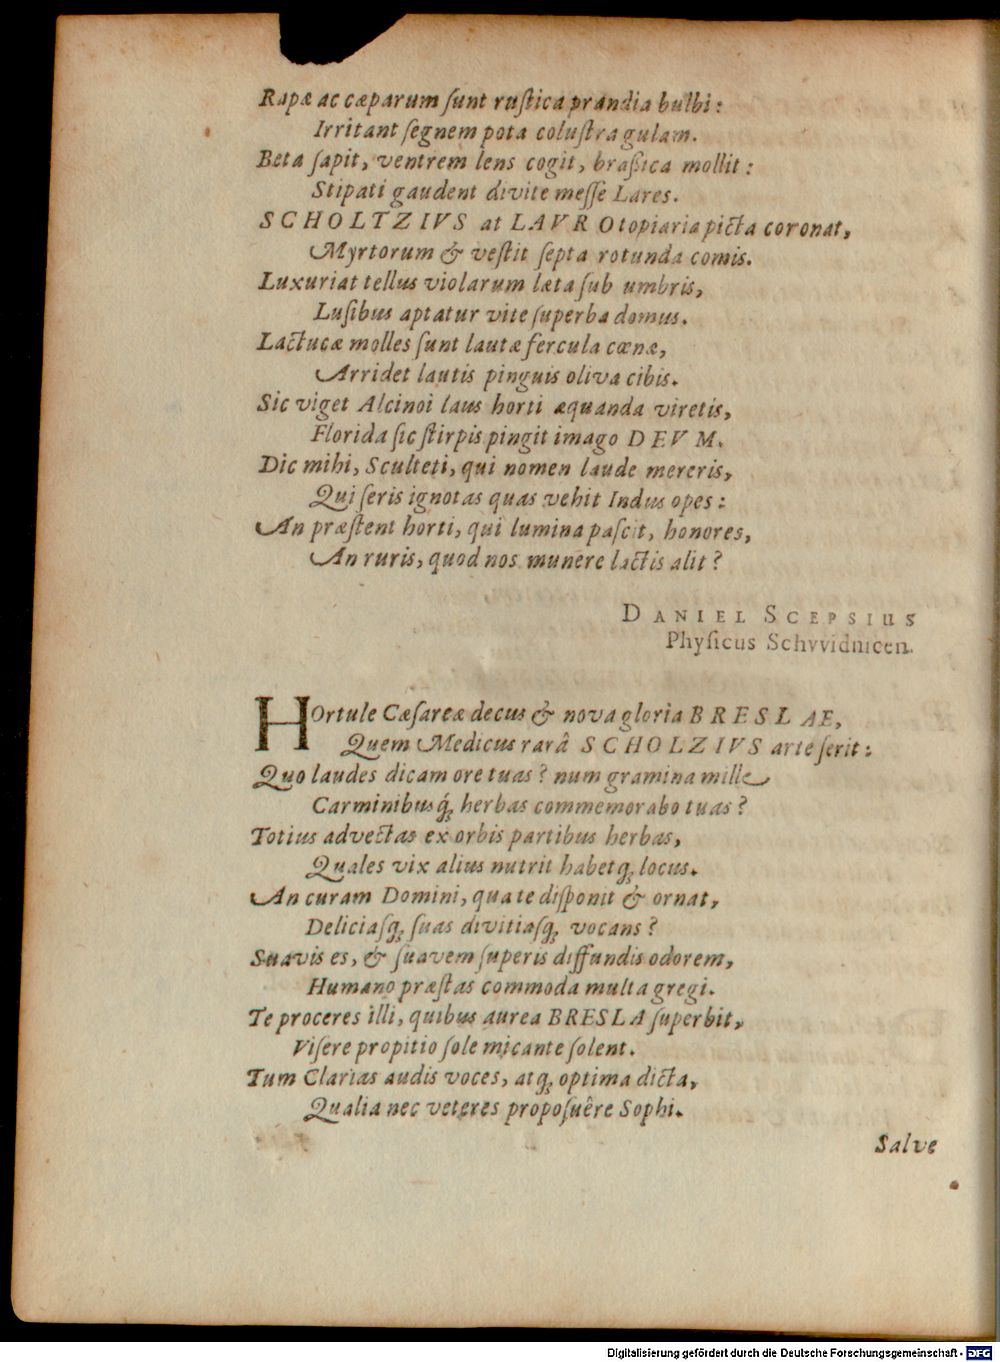 Rapæ ac cæparum ſunt ruſtica prandia bulbi:
Irritant ſegnem pota coluſtra gulam.
Beta ſapit, ventrem lens cogit, braſsica mollit:
Stipati gaudent divite meſſe Lares.
SCHOLTZIVS at LAVRO topiaria picta coronat,
Myrtorum & veſtit ſepta rotunda comis.
Luxuriat tellus violarum læta ſub umbris,
Luſibus aptatur vite ſuperba domus.
Lactucæ molles ſunt lautæ fercula cœnæ,
Arridet lautis pinguis oliva cibis.
Sic viget Alcinoi laus horti æquanda viretis,
Florida ſic ſtirpis pingit imago DEVM.
Dic mihi, Sculteti, qui nomen laude mereris,
Qui ſeris ignotas quas vehit Indus opes:
An præſtent horti, qui lumina paſcit, honores,
An ruris, quod nos munere lactis alit?
DANIEL SCEPSIUS
Phyſicus Schvvidnicen.
HOrtule Cæſareæ decus & nova gloria BRESLAE,
Quem Medicus rarâ SCHOLZIVS arte ſerit:
Quo laudes dicam ore tuas? num gramina mille
Carminibusq́; herbas commemorabo tuas?
Totius advectas ex orbis partibus herbas,
Quales vix alius nutrit habetq; locus.
An curam Domini, qua te diſponit & ornat,
Deliciaſq; ſuas divitiaſq; vocans?
Suavis es, & ſuavem ſuperis diffundis odorem,
Humano præſtas commoda multa gregi.
Te proceres illi, quibus aurea BRESLA ſuperbit,
Viſere propitio ſole micante ſolent.
Tum Clarias audis voces, atq; optima dicta,
Qualia nec veteres propoſuêre Sophi.
Salve
Digitalisierung gefördert durch die Deutsche Forschungsgemeinschaft - DFG